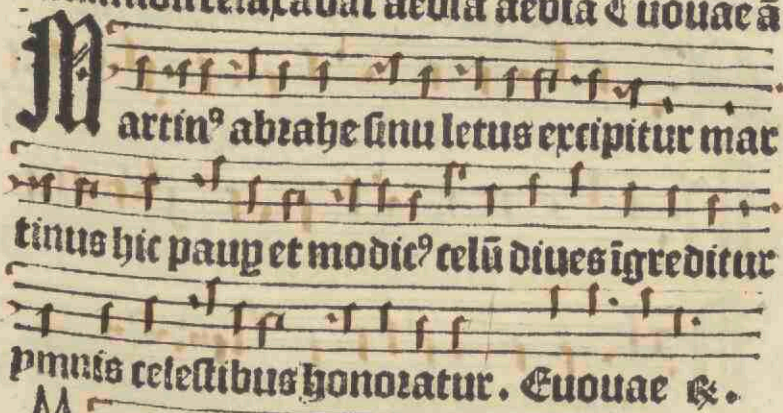 aeuia aeuia Euouae ā
Martinꝰ abrahe sinu letus excipitur mar
tinus hic pauꝑ et modicꝰ celū diues īgreditur
ymnis celestibus honoratur. Euouae